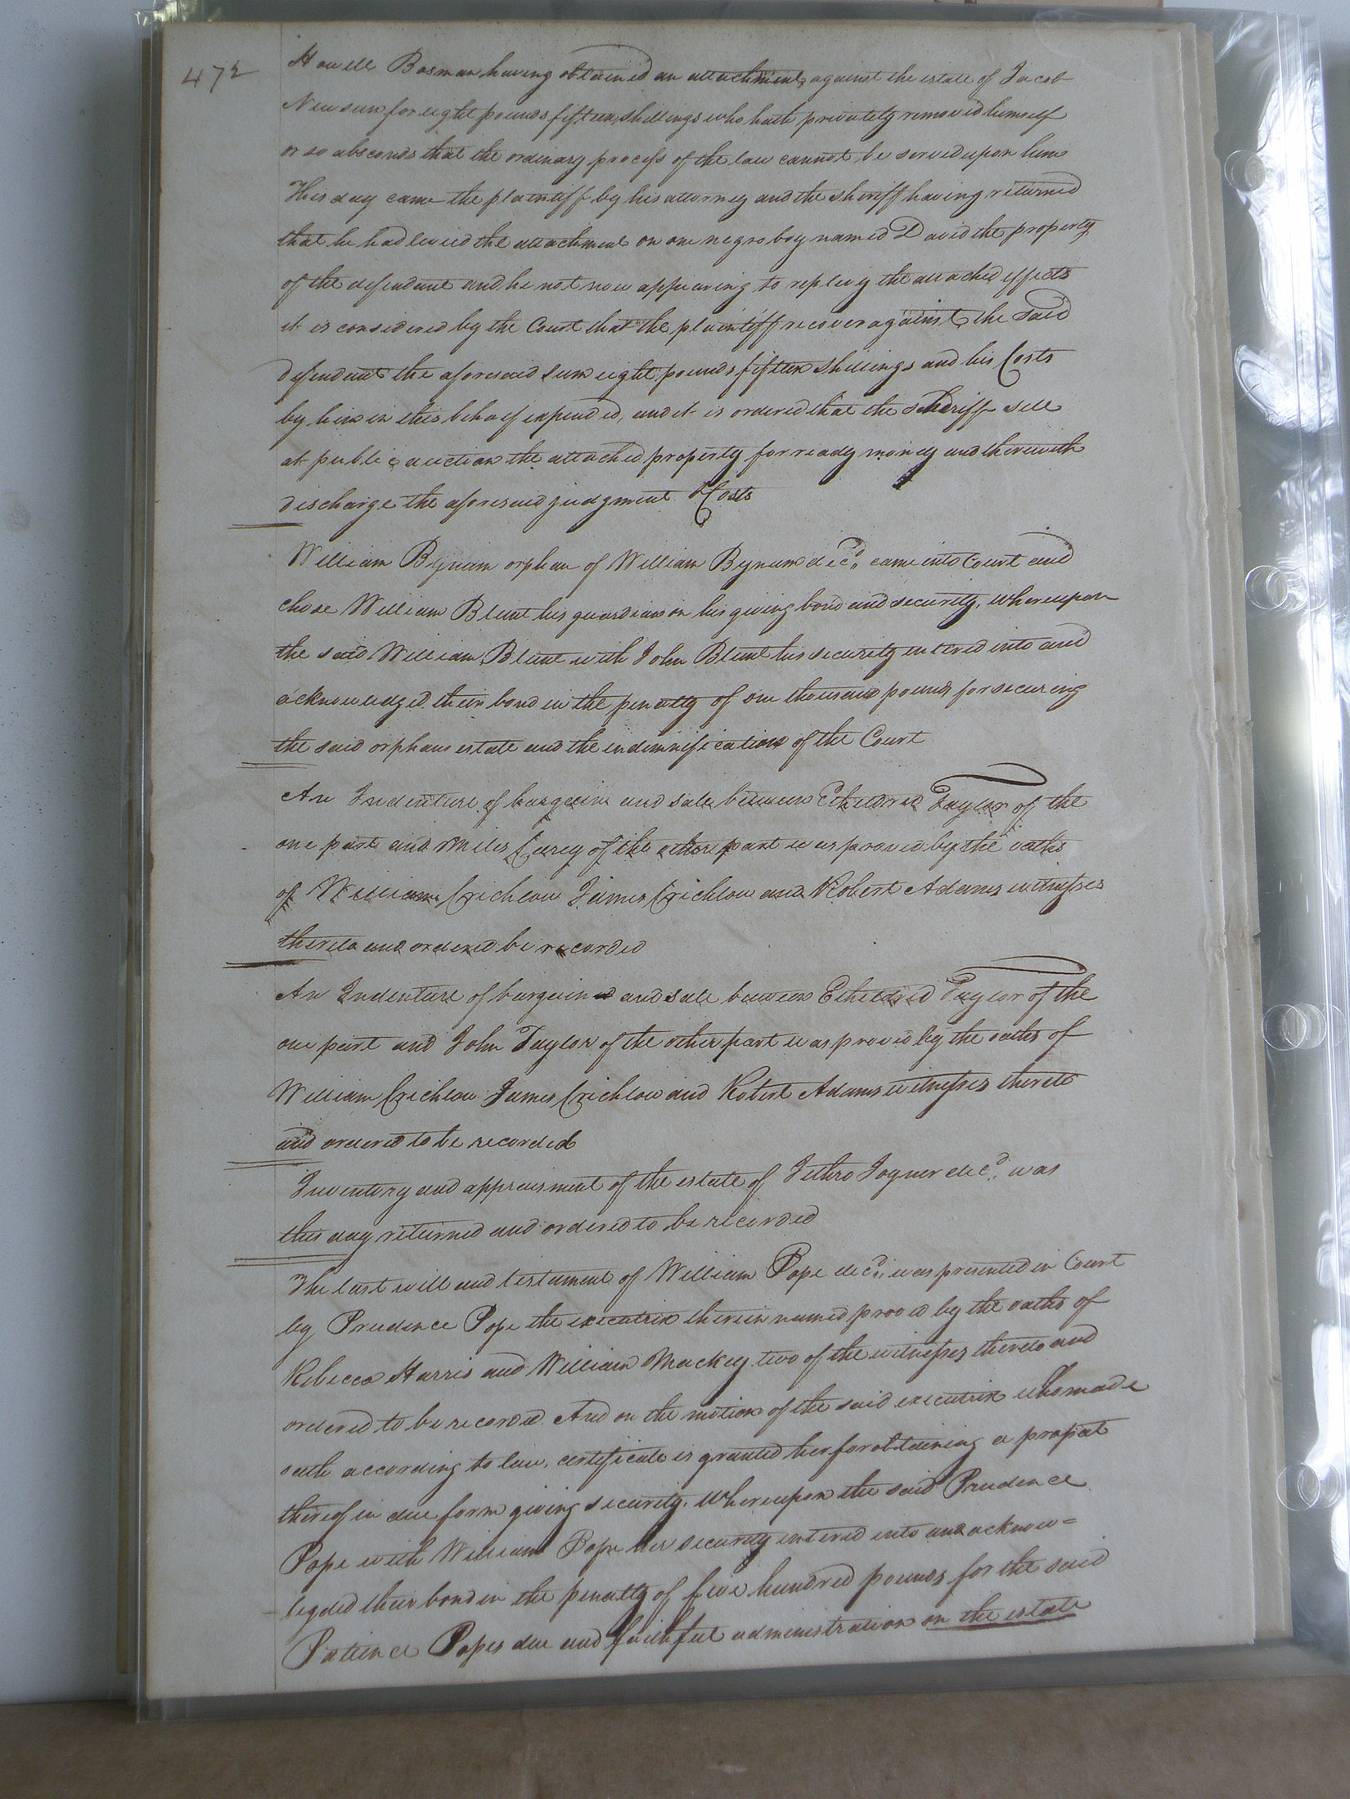 472
Howell Bosman having obtained an attachment against the estate of Jacob
Newsum for eight pounds fifteen shillings who hath privately removed himself
or so absconds that the ordinary process of the law cannot be served upon him
This day came the plaintiff by his attorney and the sheriff having returned
that he had levied the attachment on one negro boy named David the property
of the defendant and he not now appearing to replevy the attached effects
it is considered by the Court that the plaintiff recover against the said
defendant the aforesaid sum eight pounds fifteen shillings and his Costs
by him in this behalf expended, and it is ordered that the sheriff sell
at public auction the attached property for ready money and therewith
discharge the aforesaid judgment & Costs
William Bynum orphan of William Bynum decd. came into Court and
chose William Blunt his guardian on his giving bond and security, Whereupon
the said William Blunt with John Blunt his security entered into and
acknowledged their bond in the penalty of one thousand pounds for securing
the said orphans estate and the indemnification of the Court
An Indenture of bargain and sale between Etheldred Taylor of the
one part and Miles Carey of the other part was proved by the oaths
of William Crichlow James Crichlow and Robert Adams witnesses
thereto and ordered be recorded
An Indenture of bargain and sale between Etheldred Taylor of the
one part and John Taylor of the other part was proved by the oaths of
William Crichlow James Crichlow and Robert Adams witnesses thereto
and ordered to be recorded
Inventory and appraisment of the estate of Jethro Joyner decd. was
this day returned and ordered to be recorded
The last will and testament of William Pope decd. was presented in Court
by Prudence Pope the executrix therein named proved by the oaths of
Rebecca Harris and William Mackey two of the witnesses thereto and
ordered to be recorded And on the motion of the said executrix who made
oath according to law, certificate is granted her for obtaining a probat
thereof in due form giving security. Whereupon the said Prudence
Pope with William Pope her security entered into and acknow=
leged their bond in the penalty of five hundred pounds for the said
Patience Popes due and faithful administration on the estate